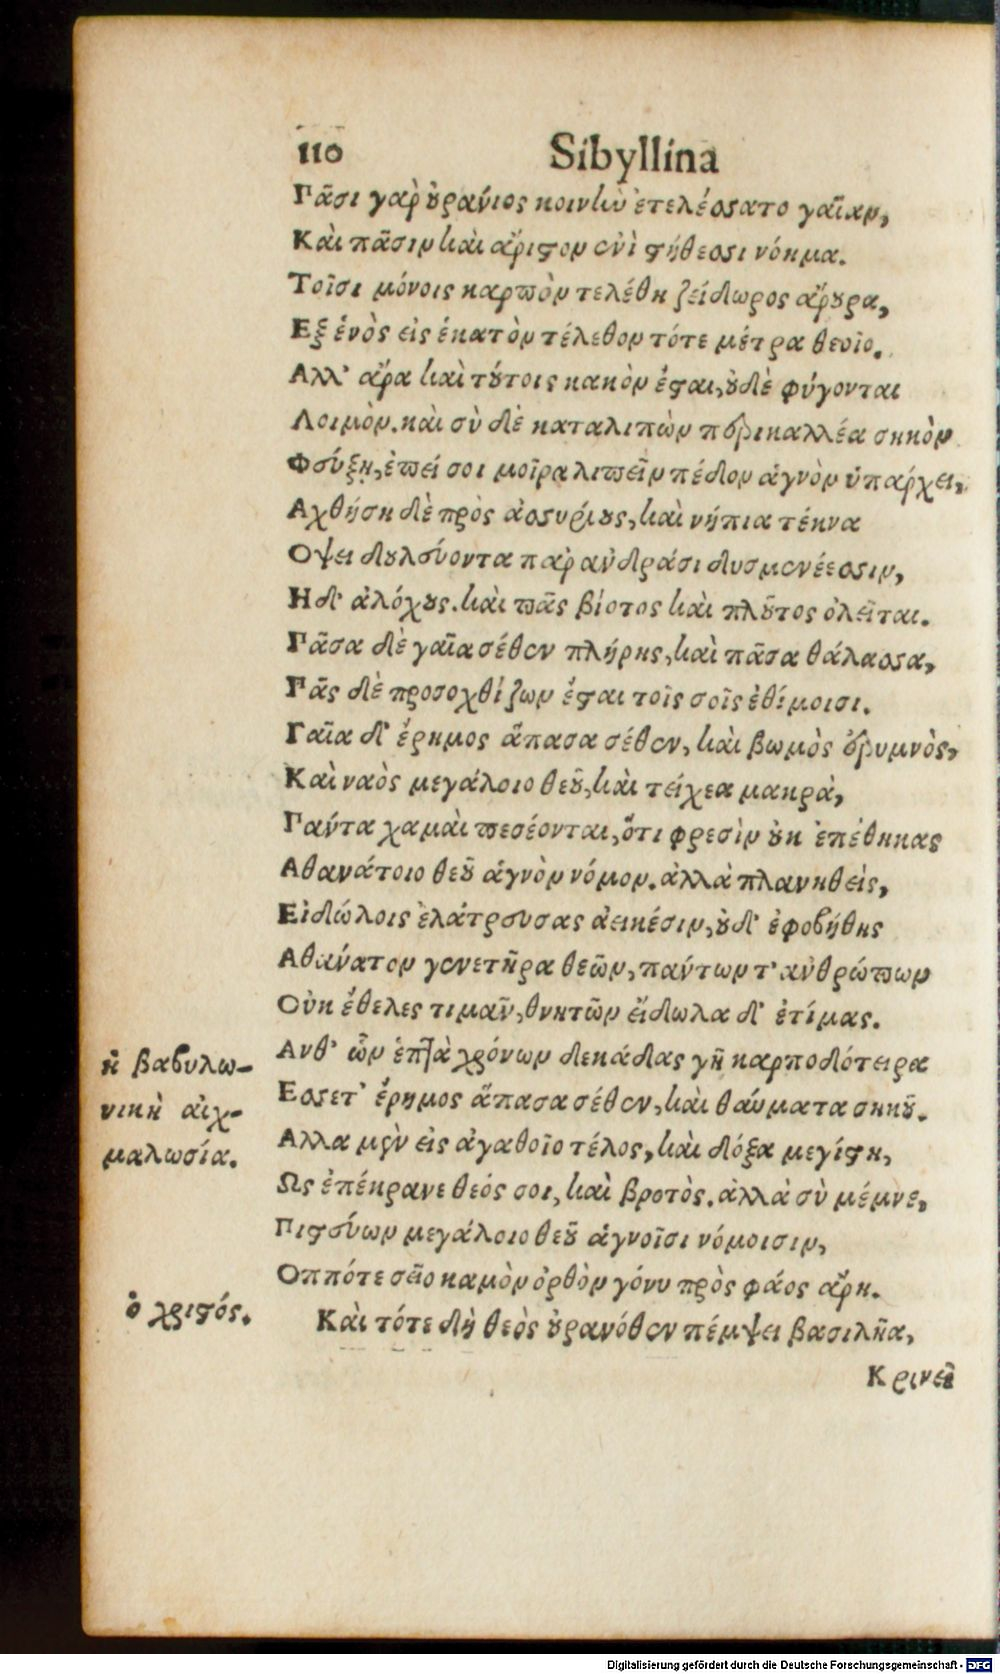 110 Sibyllina
Πᾶσι γὰρ οὐράνιος κοινὴν ἐτελέσσατο γαῖαν,
Καὶ πᾶσιν καὶ ἄριστον ἐνὶ στήθεσσι νόημα.
Τοῖσι μόνοις καρπὸν τελέθη ζείδωρος ἄρουρα,
Εξ ἑνὸς εἰς ἑκατὸν τέλεθον τότε μέτρα θεοῖο.
Αλλ' ἄρα καὶ τούτοις κακὸν ἔσται, οὐδὲ φύγονται
Λοιμόν. καὶ σὺ δὲ καταλιπὼν περικαλλέα σηκὸν
Φεύξῃ, ἐπεί σοι μοῖρα λιπεῖν πέδον ἁγνὸν ὑπάρχει,
Αχθήσῃ δὲ πρὸς ἀσσυρίους, καὶ νήπια τέκνα
Οψει δουλεύοντα παρ' ἀνδράσι δυσμενέεσσιν,
Ηδ' ἀλόχους. καὶ πᾶς βίοτος καὶ πλοῦτος ὀλεῖται.
Πᾶσα δὲ γαῖα σέθεν πλήρης, καὶ πᾶσα θάλασσα,
Πᾶς δὲ προσοχθίζων ἔσται τοῖς σοῖς ἐθίμοισι.
Γαῖα δ' ἔρημος ἅπασα σέθεν, καὶ βωμὸς ἐρυμνὸς,
Καὶ ναὸς μεγάλοιο θεοῦ, καὶ τείχεα μακρὰ,
Πάντα χαμαὶ πεσέονται, ὅτι φρεσὶν οὐκ ἐπέθηκας
Αθανάτοιο θεοῦ ἁγνὸν νόμον. ἀλλὰ πλανηθεὶς,
Εἰδώλοις ἐλάτρευσας ἀεικέσιν, οὐδ' ἐφοβήθης
Αθάνατον γενετῆρα θεῶν, πάντων τ' ἀνθρώπων
Οὐκ ἔθελες τιμᾶν, θνητῶν εἴδωλα δ' ἐτίμας.
Ανθ' ὧν ἑπτὰ χρόνων δεκάδας γῆ καρποδότειρα
ἡ βαβυλω-
Εσσετ' ἔρημος ἅπασα σέθεν, καὶ θαύματα σηκοῦ.
νικὴ αἰχ-
Αλλα μὲν εἰς ἀγαθοῖο τέλος, καὶ δόξα μεγίστη,
μαλωσία.
Ως ἐπέκρανε θεός σοι, καὶ βροτὸς. ἀλλὰ σὺ μέμνε,
Πιστεύων μεγάλοιο θεοῦ ἁγνοῖσι νόμοισιν,
Οππότε σεῖο καμὸν ὀρθὸν γόνυ πρὸς φάος ἄρῃ.
ὁ χριστός.
Καὶ τότε δὴ θεὸς οὐρανόθεν πέμψει βασιλῆα,
Κρινεῖ
Digitalisierung gefördert durch die Deutsche Forschungsgemeinschaft - DFG